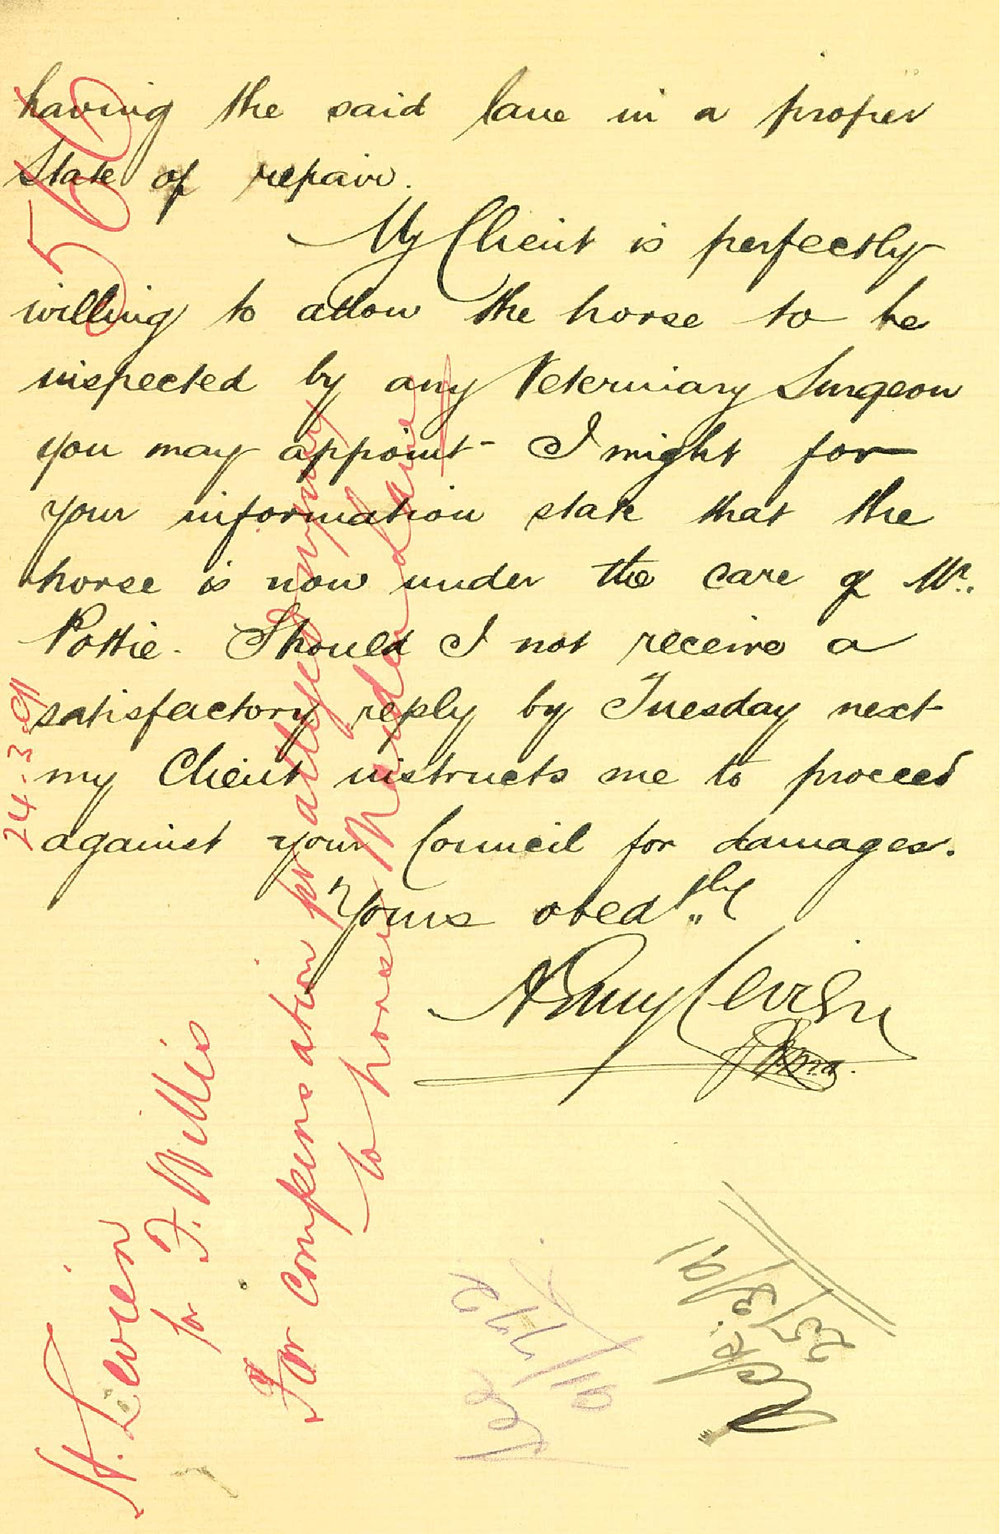 having the said lane in a proper
State of repair.
My Client is perfectly
willing to allow the horse to be
inspected by any Veterinary Surgeon
you may appoint - I might for
your information state that the
horse is now under the care of Mr.
Pottie. Should I not receive a
satisfactory reply by Tuesday next
my Client instructs me to proceed
against your Council for damages.
Yours obedtly
Levien
560
24.3.91
H. Levien
for F. Willis
For compensation for alleged injury
to horse Marsden Lane
Ack.
25/3/91